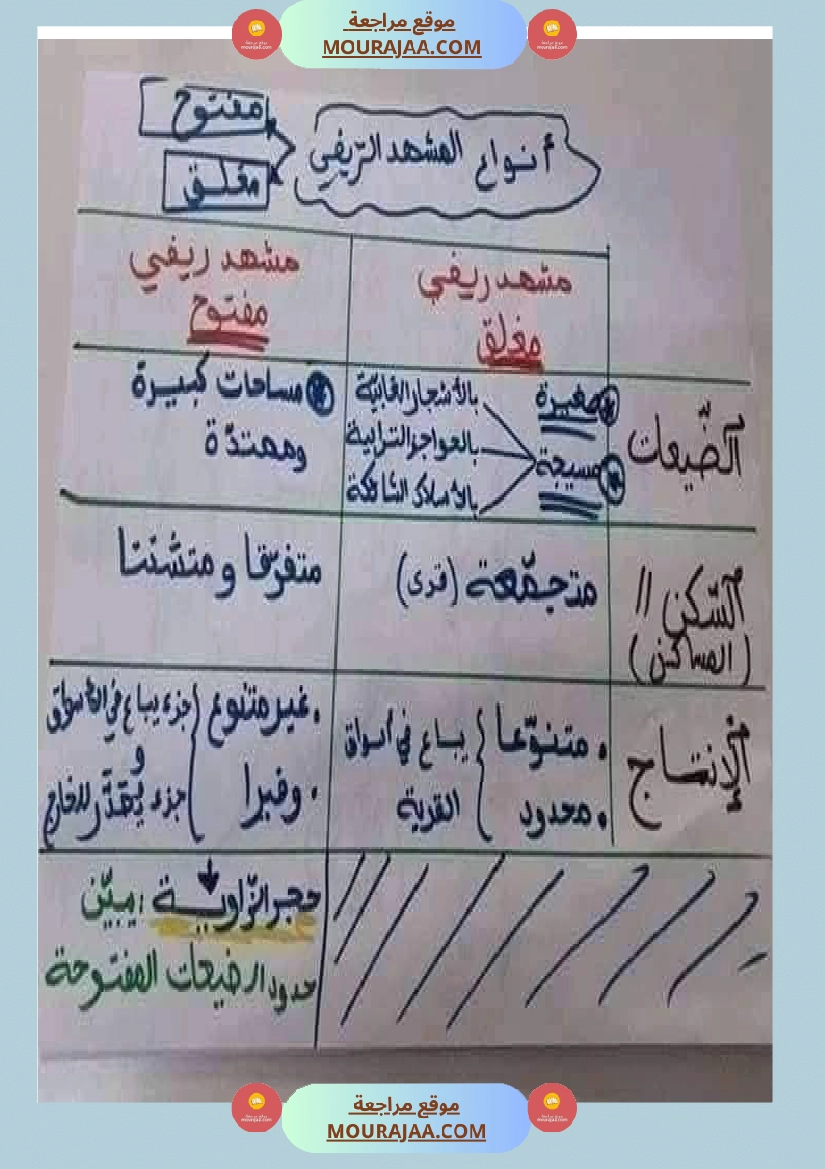 موقع مراجعة
MOURAJAA.COM
أنواع المشهد الرّيفي
مفتوح
مغلق
مشهد ريفي
مغلق
مشهد ريفي
مفتوح
الضّيعات
صغيرة
مسيجة
بالأشجار الغابيّة
بالحواجز الترابية
بالأسلاك الشائكة
مساحات كبيرة
وممتدّة
السّكن //
(المساكن)
متجمّعة (قرى)
متفرقا و متشتتا
الإنتاج
متنوّعا
محدود
يباع في أسواق
القرية
غير متنوع
وفيرا
جزء يباع في الأسواق
و
جزء يصدّر للخارج
حجر الزّاوية : يبيّن
حدود الضيعات المفتوحة
موقع مراجعة
MOURAJAA.COM